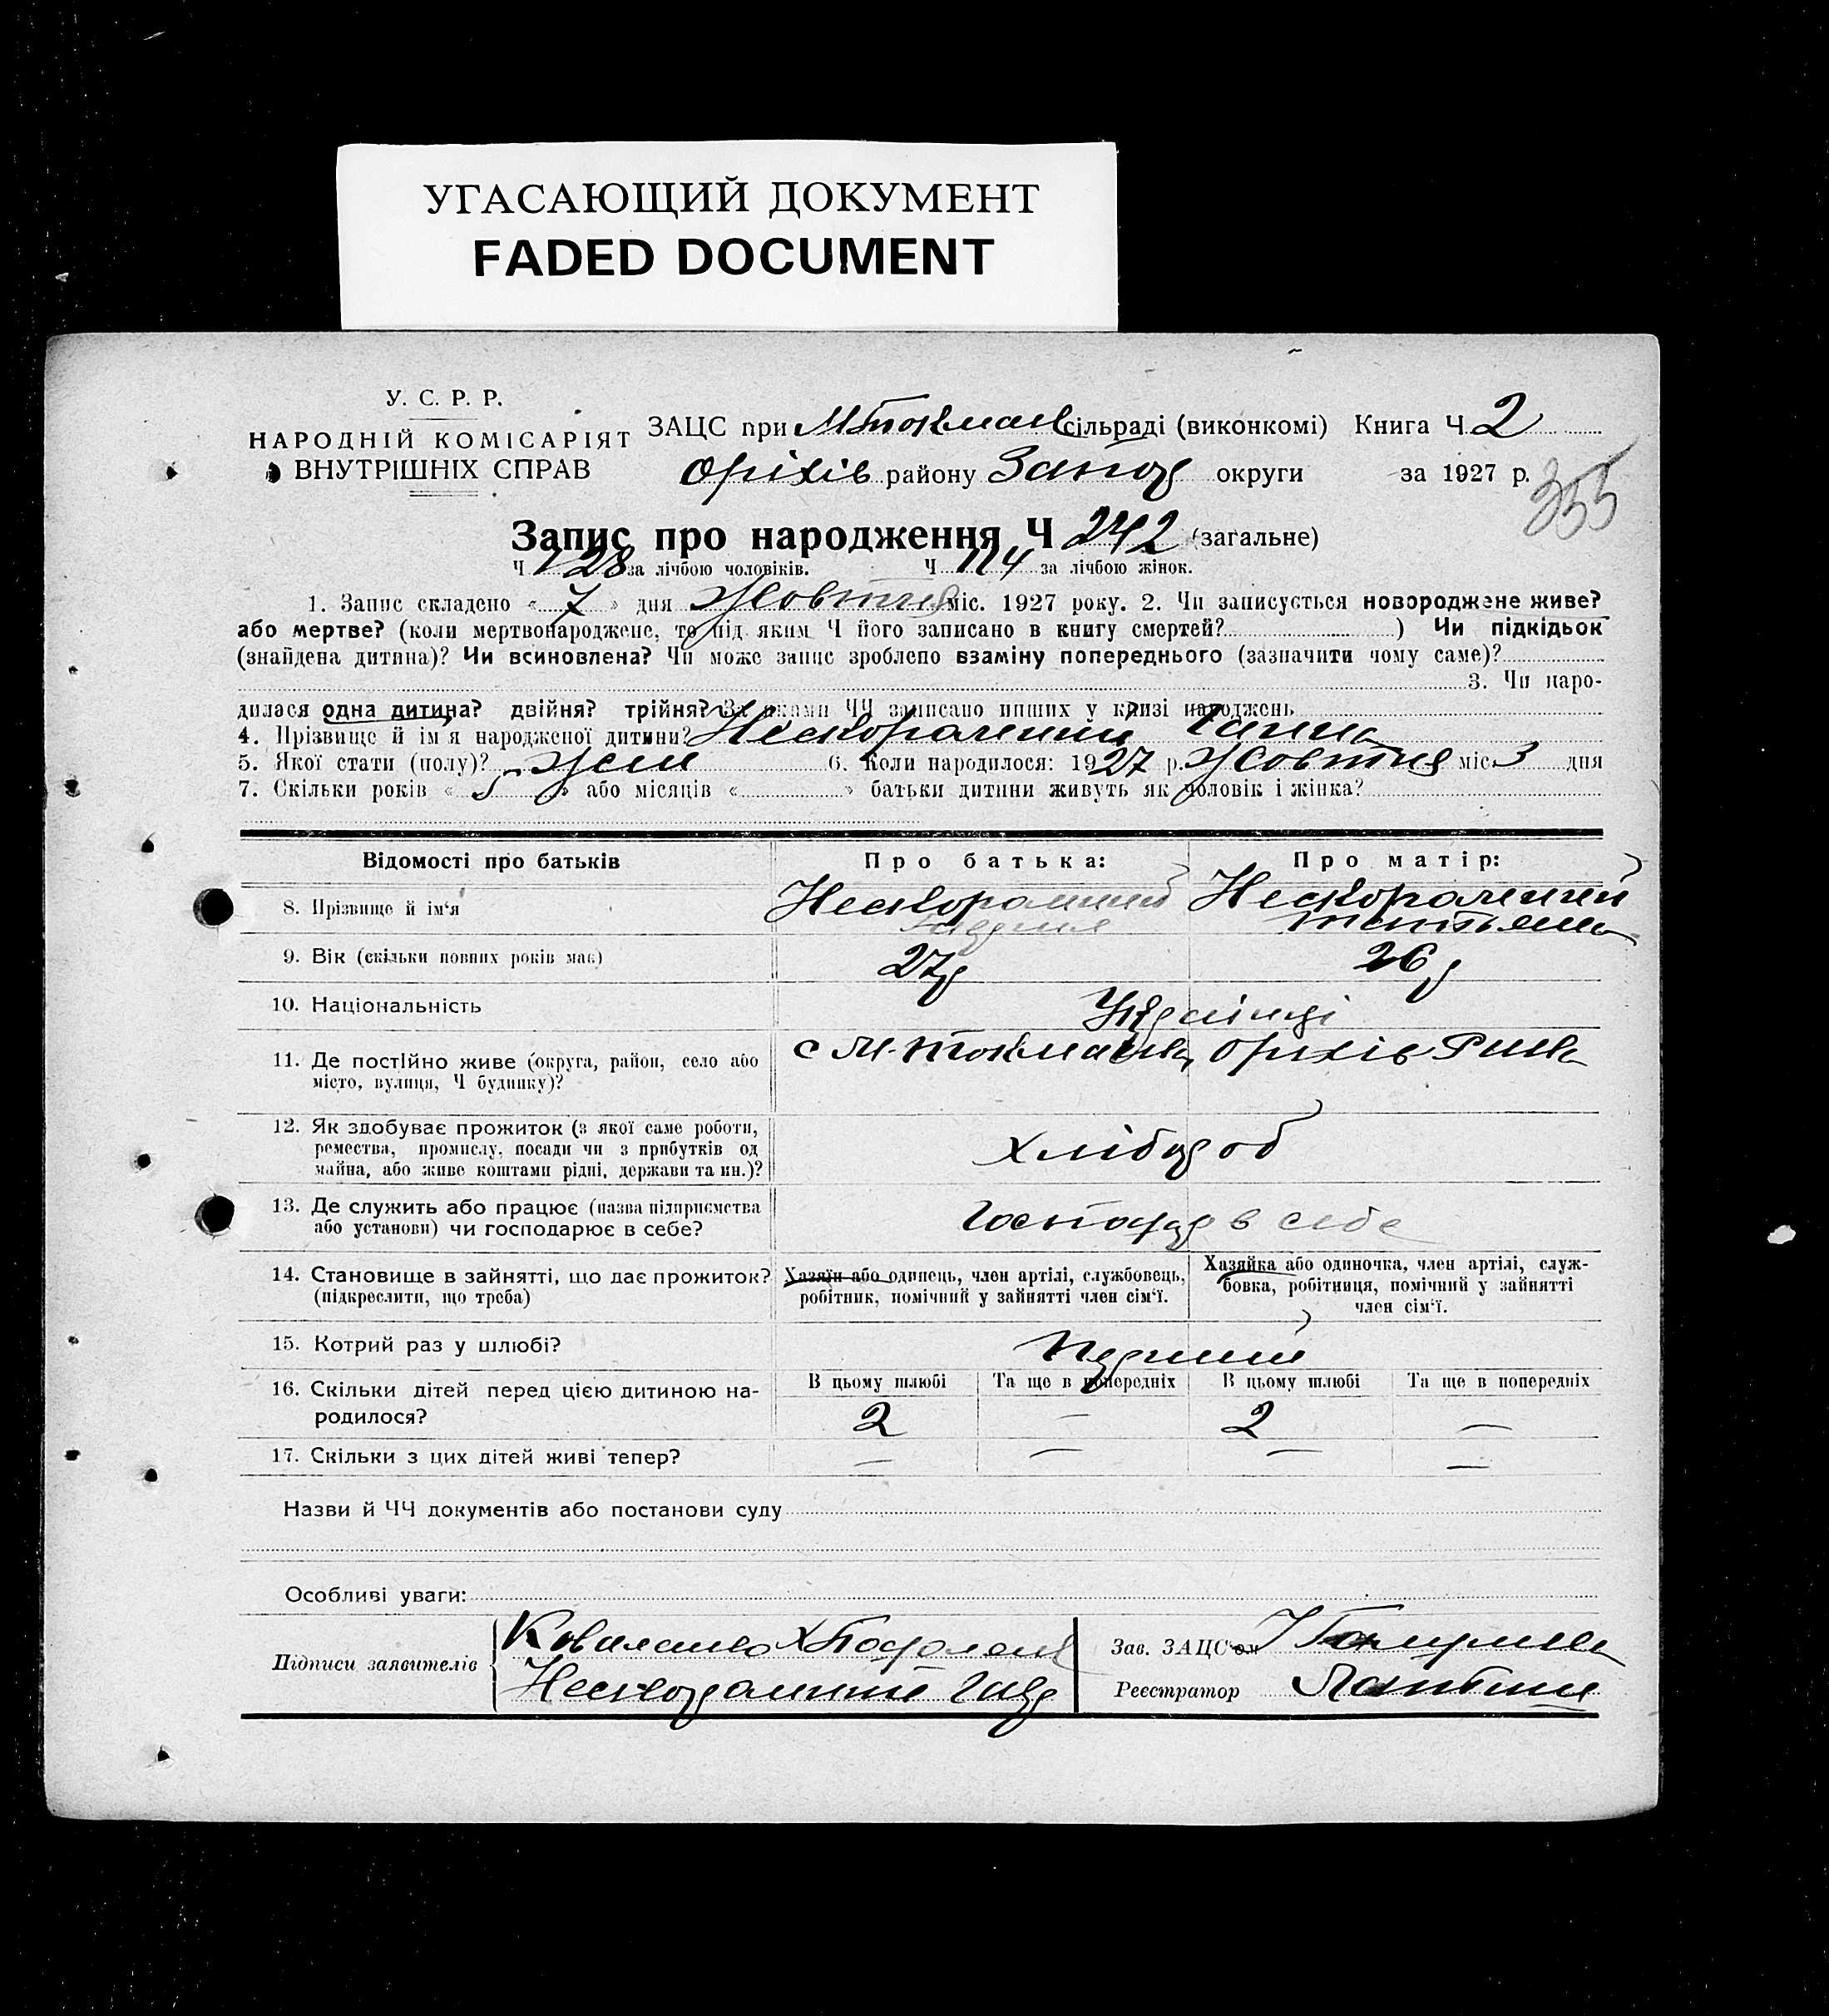 УГАСАЮЩИЙ ДОКУМЕНТ
FADED DOCUMENT
У. С. Р. Р.
НАРОДНІЙ КОМІСАРІЯТ
ВНУТРІШНІХ СПРАВ
ЗАЦС при МТокмач сільраді (виконкомі) Книга Ч. 2
Оріхів району Запор округи за 1927 р.
355
Запис про народження Ч 242 (загальне)
Ч. 128 за лічбою чоловіків. Ч. 114 за лічбою жінок.
1. Запис складено « 7 » дня Жовтня міс. 1927 року. 2. Чи записується новороджене живе?
або мертве? (коли мертвонароджене, то під яким Ч його записано в книгу смертей? ) Чи підкідьок
(знайдена дитина)? Чи всиновлена? Чи може запис зроблено взаміну попереднього (зазначити чому саме)?
3. Чи наро-
дилася одна дитина? двійня? трійня? За якими ЧЧ записано инших у книзі народжень
4. Прізвище й ім'я народженої дитини? Нескоромний Ганна
5. Якої стати (полу)? Жен 6. Коли народилося: 1927 р. Жовтня міс. 3 дня
7. Скільки років « 5 » або місяців « » батьки дитини живуть як чоловік і жінка?
Відомості про батьків Про батька: Про матір:
8. Прізвище й ім'я Нескоромний Нескоромний
Тетяна
9. Вік (скільки повних років має) 27р 26р
10. Національність Українці
11. Де постійно живе (округа, район, село або с М-Токмачка, Оріхів Р-на
місто, вулиця, Ч будинку)?
12. Як здобуває прожиток (з якої саме роботи,
ремества, промислу, посади чи з прибутків од Хлібороб
майна, або живе коштами рідні, держави та ин.)?
13. Де служить або працює (назва підприємства
або установи) чи господарює в себе? Господар в себе
14. Становище в зайнятті, що дає прожиток? Хазяїн або одинець, член артілі, службовець, Хазяйка або одиночка, член артілі, служ-
(підкреслити, що треба) робітник, помічний у зайнятті член сім'ї. бовка, робітниця, помічний у зайнятті
член сім'ї.
15. Котрий раз у шлюбі? Перший
16. Скільки дітей перед цією дитиною на- В цьому шлюбі Та ще в попередніх В цьому шлюбі Та ще в попередніх
родилося? 2 — 2 —
17. Скільки з цих дітей живі тепер? — — — —
Назви й ЧЧ документів або постанови суду
Особливі уваги:
Підписи заявителів Зав. ЗАЦС'ом
Нескоромний Реєстратор